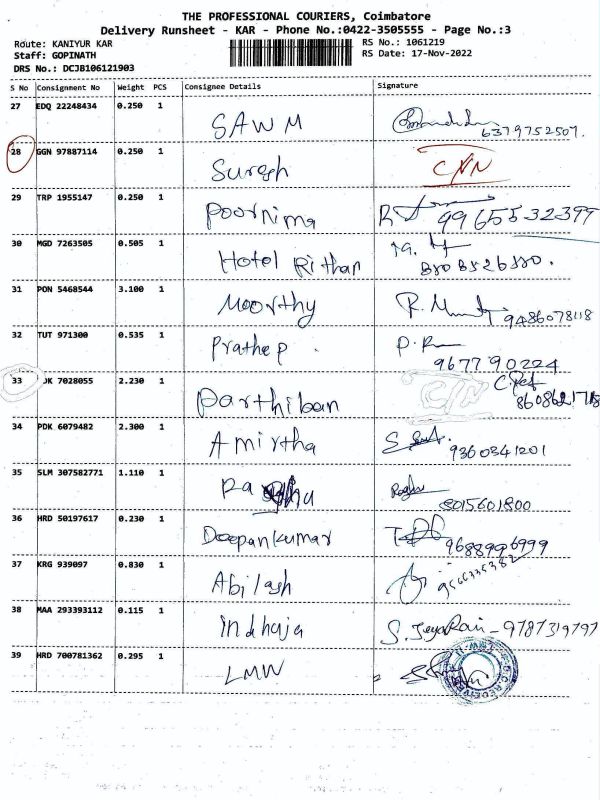 THE PROFESSIONAL COURIERS, Coimbatore
Delivery Runsheet - KAR - Phone No.:0422-3505555 - Page No.:3
Route: KANIYUR KAR
RS No.: 1061219
Staff: GOPINATH
RS Date: 17-Nov-2022
DRS No.: DCJB106121903
S No Consignment No Weight PCS Consignee Details Signature
27 EDQ 22248434 0.250 1 SAWM 6379752507.
28 GGN 97887114 0.250 1 Suresh CNN
29 TRP 1955147 0.250 1 Poornima 9965532397
30 MGD 7263505 0.505 1 Hotel Rithan
31 PON 5468544 3.100 1 Moorthy 9486078118
32 TUT 971300 0.535 1 Prathep. 9677790224
33 7028055 2.230 1 Parthiban C/N 8608621718
34 PDK 6079482 2.300 1 Amirtha 9360341201
35 SLM 307582771 1.110 1 Raghu 8015601800
36 HRD 50197617 0.230 1 Deepankumar 9688996999
37 KRG 939097 0.830 1 Abilash 9566335382
38 MAA 293393112 0.115 1 Indhuja S. JeyaRani - 9787319797
39 HRD 700781362 0.295 1 LMW